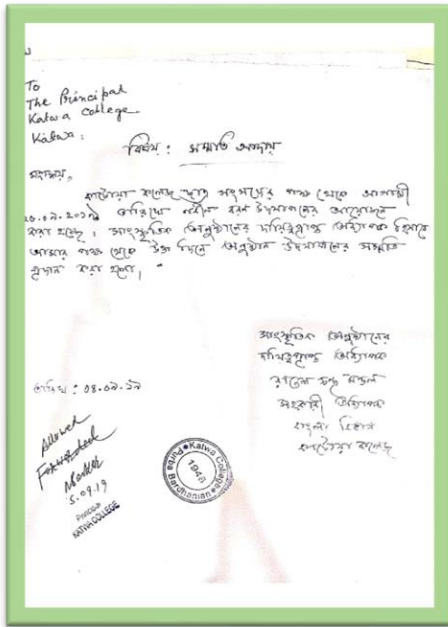 To
The Principal
Katwa College
Katwa:
বিষয় : সম্মতি আদায়
মহাশয়,
কাটোয়া কলেজ ছাত্র সংসদের পক্ষ থেকে আগামী
তারিখে নবীন বরণ উদযাপনের আয়োজন
করা হয়েছে। সাংস্কৃতিক অনুষ্ঠানের দায়িত্বপ্রাপ্ত অধ্যাপক হিসাবে
আমার পক্ষ থেকে উক্ত দিনে অনুষ্ঠান উদযাপনের সম্মতি
প্রদান করা হলো।
সাংস্কৃতিক অনুষ্ঠানের
দায়িত্বপ্রাপ্ত অধ্যাপক
চন্দ্র মন্ডল
সহকারী অধ্যাপক
বাংলা বিভাগ
কাটোয়া কলেজ
তারিখ : ০৪.০৯.১৯
Allowed
Forwarded
5.09.19
Principal
KATWA COLLEGE
Katwa College
1948
Purba Bardhaman